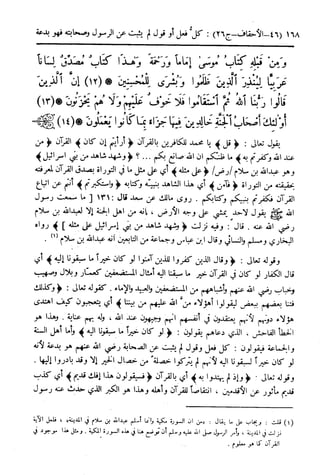 ١٦٨ (٤٦ - الأحقاف - ج٢٦) : كل فعل أو قول لم يثبت عن الرسول وصحابته فهو بدعة
وَمِن قَبْلِهِ كِتَابُ مُوسَىٰ إِمَامًا وَرَحْمَةً وَهَـٰذَا كِتَابٌ مُصَدِّقٌ لِسَانًا
عَرَبِيًّا لِيُنذِرَ الَّذِينَ ظَلَمُوا وَبُشْرَىٰ لِلْمُحْسِنِينَ * (١٢) إِنَّ الَّذِينَ
قَالُوا رَبُّنَا اللَّهُ ثُمَّ اسْتَقَامُوا فَلَا خَوْفٌ عَلَيْهِمْ وَلَا هُمْ يَحْزَنُونَ * (١٣)
أُولَـٰئِكَ أَصْحَابُ الْجَنَّةِ خَالِدِينَ فِيهَا جَزَاءً بِمَا كَانُوا يَعْمَلُونَ * (١٤)
يقول تعالى : ﴿ قل ﴾ يا محمد للكافرين بالقرآن ﴿ أرأيتم إن كان ﴾ القرآن ﴿ من
عند الله وكفرتم به ﴾ ما ظنكم ان الله صانع بكم ... ؟ ﴿ وشهد شاهد من بني اسرائيل ﴾
وهو عبدالله بن سلام /رض/ ﴿ على مثله ﴾ أي على مثل ما في التوراة بصدق القرآن لمعرفته
بحقيقته من التوراة ﴿ فآمن ﴾ أي هذا الشاهد بنبيه وكتابه ﴿ واستكبرتم ﴾ أنتم عن اتباع
القرآن فكفرتم بنبيكم وكتابكم . روى مالك عن سعد قال : ١٣٦١ [ ما سمعت رسول
الله ﷺ يقول لأحد يمشي على وجه الأرض ، إنه من اهل الجنة إلا لعبدالله بن سلام
رضي الله عنه . قال : وفيه نزلت ﴿ وشهد شاهد من بني إسرائيل على مثله ﴾ ] رواه
البخاري ومسلم والنسائي وقال ابن عباس وجماعة من التابعين أنه عبدالله بن سلام (١) .
وقوله تعالى : ﴿ وقال الذين كفروا للذين آمنوا لو كان خيراً ما سبقونا إليه ﴾ أي
قال الكفار لو كان في القرآن خير ما سبقنا اليه أمثال المستضعفين كعمار وبلال وصهيب
وخباب رضي الله عنهم وأشباههم من المستضعفين والعبيد والإماء . كقوله تعالى : ﴿ وكذلك
فتنا بعضهم ببعض ليقولوا أهؤلاء منّ الله عليهم من بيننا ﴾ أي يتعجبون كيف اهتدى
هؤلاء دونهم لأنهم يعتقدون في أنفسهم انهم وجيهون عند الله ، وله بهم عناية . وهذا هو
الخطأ الفاحش ، الذي دعاهم يقولون : ﴿ لو كان خيراً ما سبقونا اليه ﴾ وأما أهل السنة
والجماعة فيقولون : كل فعل وقول لم يثبت عن الصحابة رضي الله عنهم هو بدعة لأنه
لو كان خيراً لسبقونا اليه لأنهم لم يتركوا خصلة من خصال الخير إلا وقد بادروا إليها .
وقوله تعالى : ﴿ وإذ لم يهتدوا به ﴾ أي بالقرآن ﴿ فسيقولون هذا إفك قديم ﴾ أي كذب
قديم مأثور عن الأقدمين ، انتقاصاً للقرآن وأهله وهذا هو الكبر الذي حدث عنه رسول
(١) قلت : ويجاب على ما يقال : إن السورة مكية وإنما أسلم عبدالله بن سلام في المدينة ، فلعل الآية
نزلت في المدينة ، وأمر الرسول صلى الله عليه وسلم أن توضع هنا في هذه السورة المكية . ومثل هذا موجود في
القرآن كما هو معلوم .